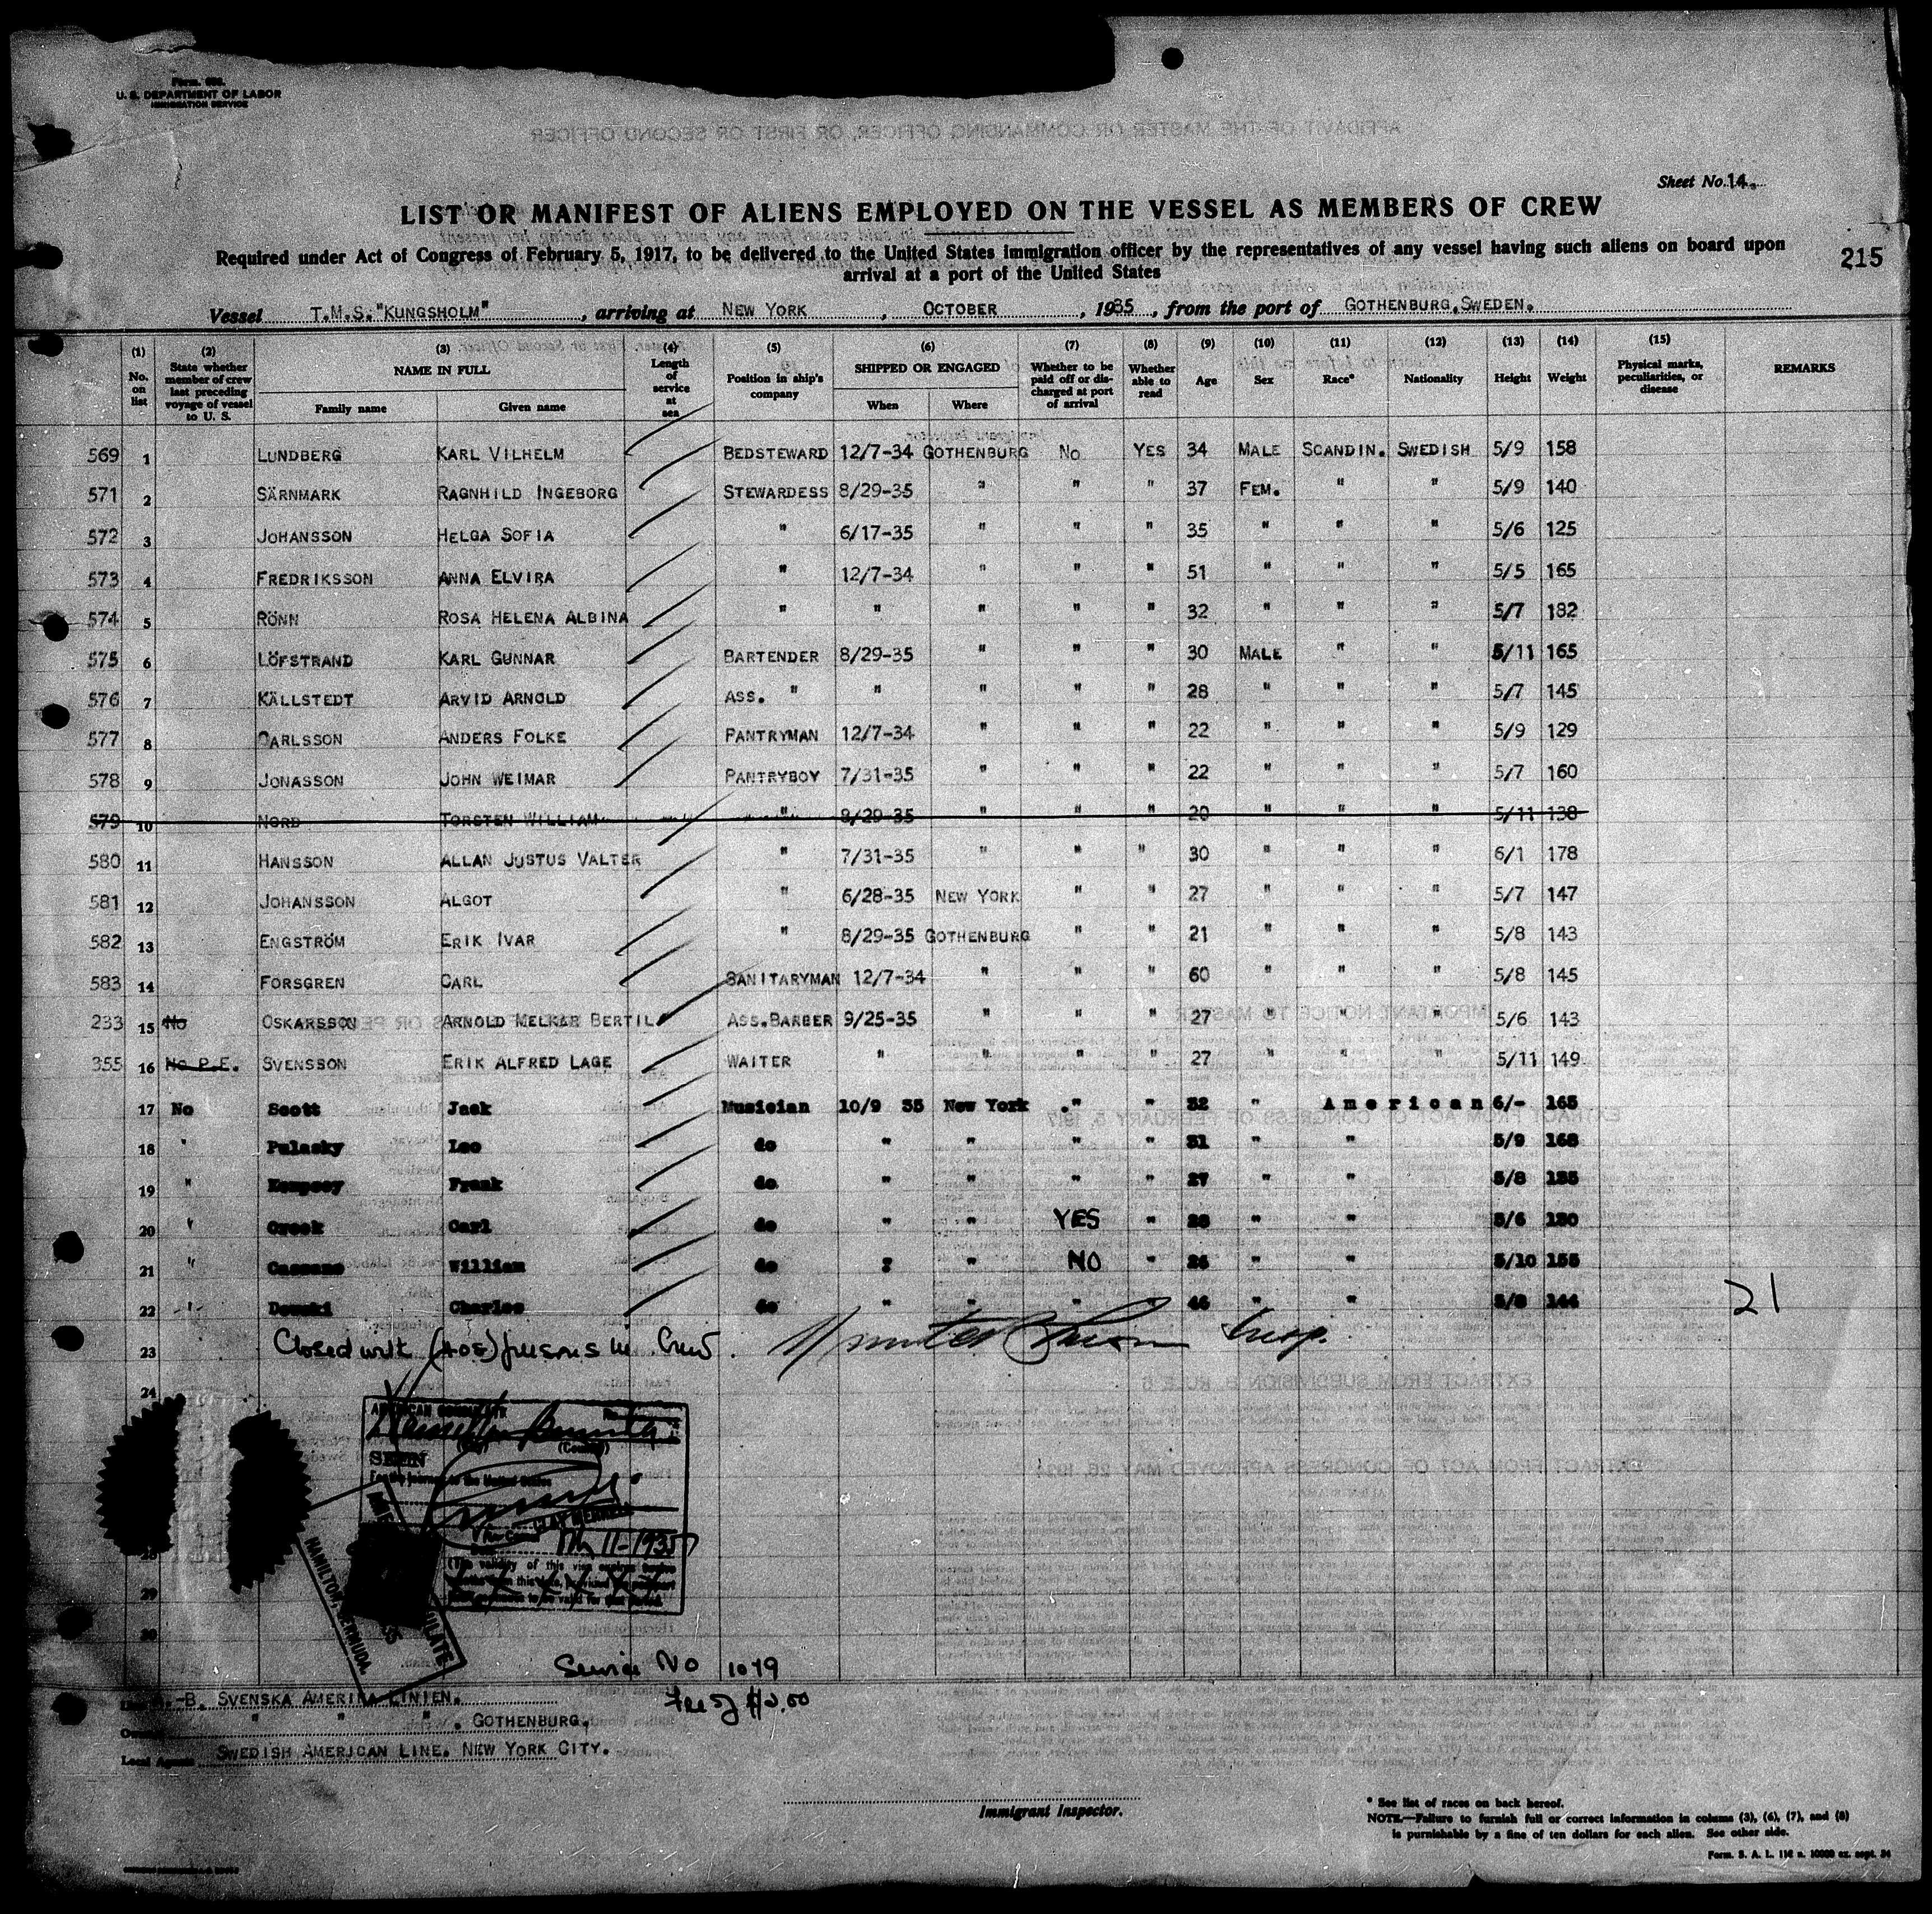 U. S. DEPARTMENT OF LABOR
IMMIGRATION SERVICE
AFFIDAVIT OF THE MASTER OR COMMANDING OFFICER, OR FIRST OR SECOND OFFICER
Sheet No. 14.
LIST OR MANIFEST OF ALIENS EMPLOYED ON THE VESSEL AS MEMBERS OF CREW
Required under Act of Congress of February 5, 1917, to be delivered to the United States immigration officer by the representatives of any vessel having such aliens on board upon
arrival at a port of the United States
215
Vessel T.M.S. "KUNGSHOLM", arriving at NEW YORK, OCTOBER, 1935, from the port of GOTHENBURG, SWEDEN.
(1) No. on list (2) State whether member of crew last preceding voyage of vessel to U. S. (3) NAME IN FULL Family name Given name (4) Length of service at sea (5) Position in ship's company (6) SHIPPED OR ENGAGED When Where (7) Whether to be paid off or discharged at port of arrival (8) Whether able to read (9) Age (10) Sex (11) Race* (12) Nationality (13) Height (14) Weight (15) Physical marks, peculiarities, or disease REMARKS
569 1 LUNDBERG KARL VILHELM BEDSTEWARD 12/7-34 GOTHENBURG No YES 34 MALE SCANDIN. SWEDISH 5/9 158
571 2 SÄRNMARK RAGNHILD INGEBORG STEWARDESS 8/29-35 " " " 37 FEM. " " 5/9 140
572 3 JOHANSSON HELGA SOFIA " 6/17-35 " " " 35 " " " 5/6 125
573 4 FREDRIKSSON ANNA ELVIRA " 12/7-34 " " " 51 " " " 5/5 165
574 5 RÖNN ROSA HELENA ALBINA " " " " " 32 " " " 5/7 182
575 6 LÖFSTRAND KARL GUNNAR BARTENDER 8/29-35 " " " 30 MALE " " 5/11 165
576 7 KÄLLSTEDT ARVID ARNOLD ASS. " " " " " 28 " " " 5/7 145
577 8 CARLSSON ANDERS FOLKE PANTRYMAN 12/7-34 " " " 22 " " " 5/9 129
578 9 JONASSON JOHN WEIMAR PANTRYBOY 7/31-35 " " " 22 " " " 5/7 160
579 10 NORD TORSTEN WILLIAM " 8/29-35 " " " 20 " " " 5/11 138
580 11 HANSSON ALLAN JUSTUS VALTER " 7/31-35 " " " 30 " " " 6/1 178
581 12 JOHANSSON ALGOT " 6/28-35 NEW YORK " " 27 " " " 5/7 147
582 13 ENGSTRÖM ERIK IVAR " 8/29-35 GOTHENBURG " " 21 " " " 5/8 143
583 14 FORSGREN CARL SANITARYMAN 12/7-34 " " " 60 " " " 5/8 145
233 15 No OSKARSSON ARNOLD MELKER BERTIL ASS.BARBER 9/25-35 " " " 27 " " " 5/6 143
355 16 No P.E. SVENSSON ERIK ALFRED LAGE WAITER " " " " 27 " " " 5/11 149
17 No Scott Jack Musician 10/9 35 New York " " 32 " American 6/- 165
18 " Pulasky Leo do " " " " 31 " " 5/9 168
19 " Frank do " " " " 27 " " 5/8 135
20 " Carl do " " YES " " " 5/6 130
21 " William do " " NO " 26 " " 5/10 155
22 " Charles do " " " 46 " " 5/8 144
21
23 Closed with (405) persons in Crew. Insp.
24
AMERICAN CONSULATE No.
Hamilton Bermuda
(City) (Country)
SEEN
For the journey to the United States
CLAY MERRELL
Vice Consul
11-1935
HAMILTON, BERMUDA
29
30
Service No 1079
Fee of $2.00
-B. SVENSKA AMERIKA LINIEN.
" " " . GOTHENBURG.
Local Agents SWEDISH AMERICAN LINE. NEW YORK CITY.
Immigrant Inspector.
* See list of races on back hereof.
NOTE.—Failure to furnish full or correct information in column (3), (6), (7), and (8)
is punishable by a fine of ten dollars for each alien. See other side.